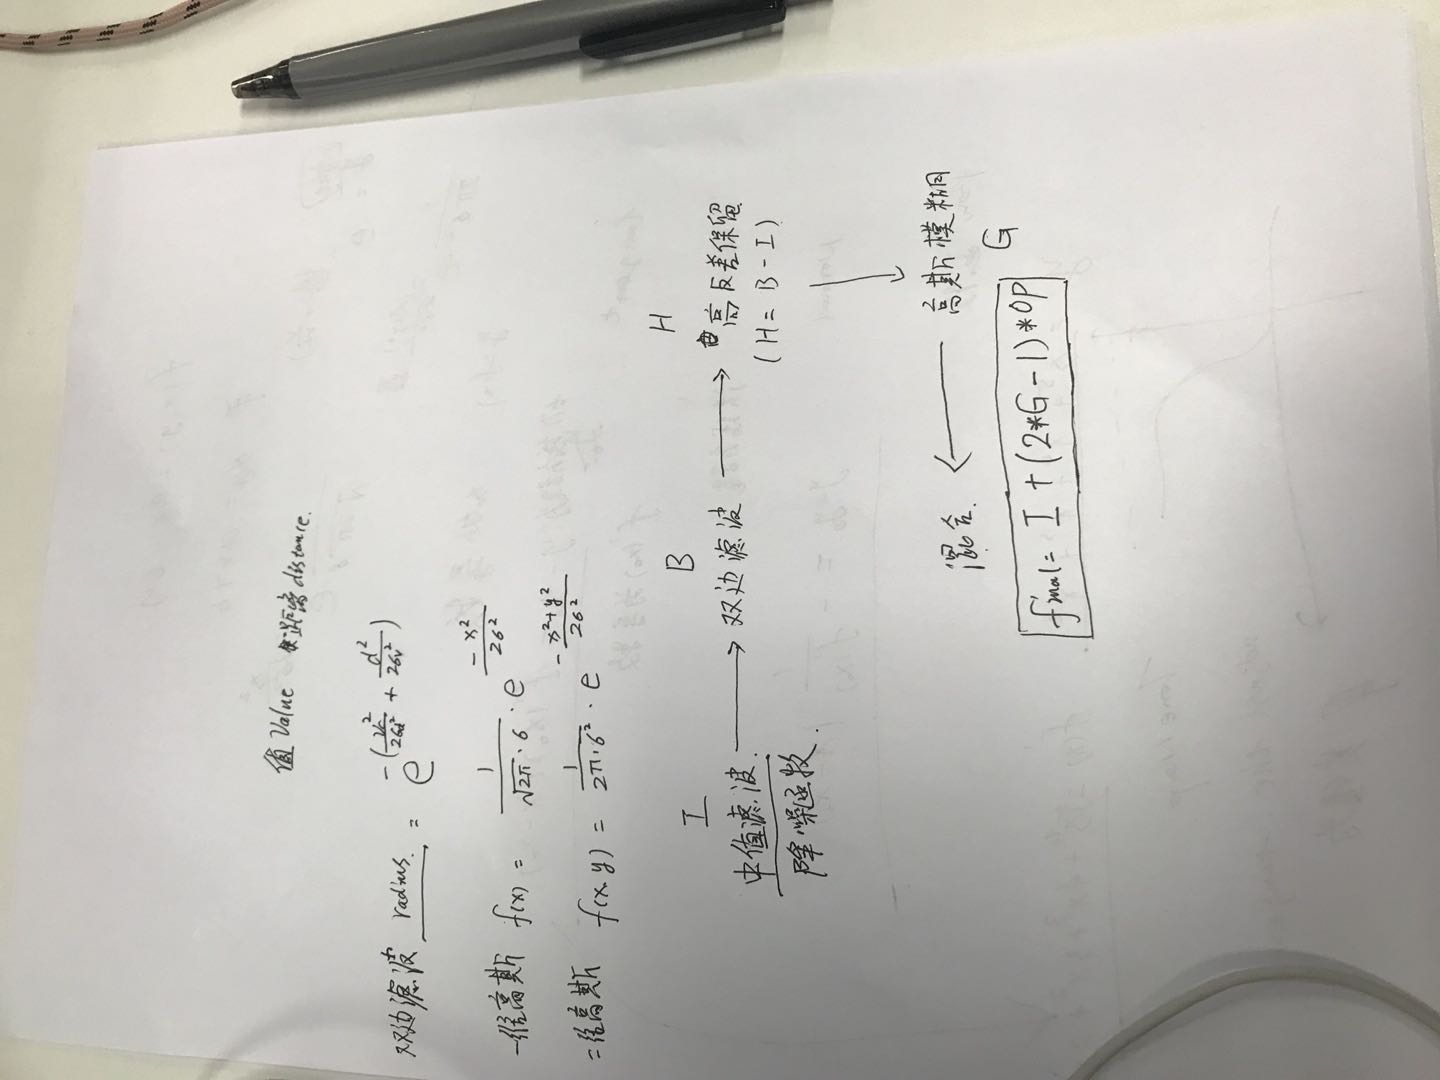 值 Value 距离 distance.
双边滤波 radius. = e^{-(\frac{v^2}{2σd^2} + \frac{d^2}{2σv^2})}
一维高斯 f(x) = \frac{1}{\sqrt{2π}·σ} · e^{-\frac{x^2}{2σ^2}}
二维高斯 f(x,y) = \frac{1}{2π·σ^2} · e^{-\frac{x^2+y^2}{2σ^2}}
I B H
中值滤波 → 双边滤波 → 高反差保留
降噪 (H = B - I)
混合. ← 高斯模糊
G
final = I + (2*G-1)*OP